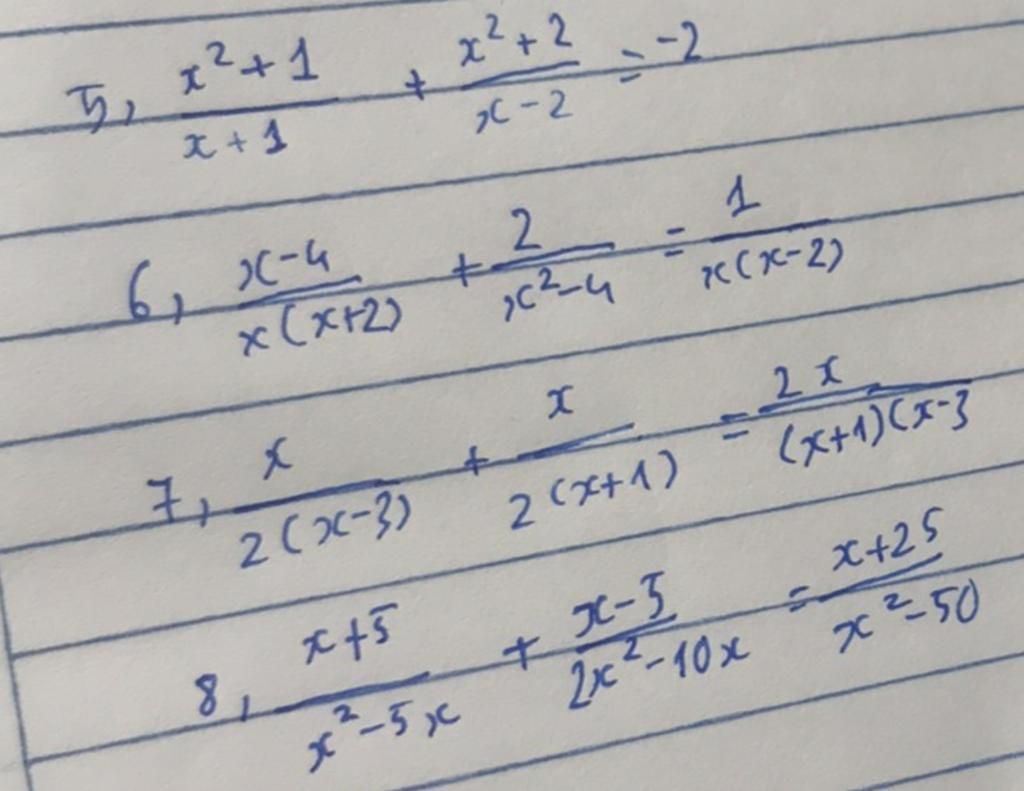 5, (x²+1)/(x+1) + (x²+2)/(x-2) = -2
6, (x-4)/(x(x+2)) + 2/(x²-4) = 1/(x(x-2))
7, x/(2(x-3)) + x/(2(x+1)) = 2x/((x+1)(x-3)
8, (x+5)/(x²-5x) + (x-5)/(2x²-10x) = (x+25)/(x²-50)